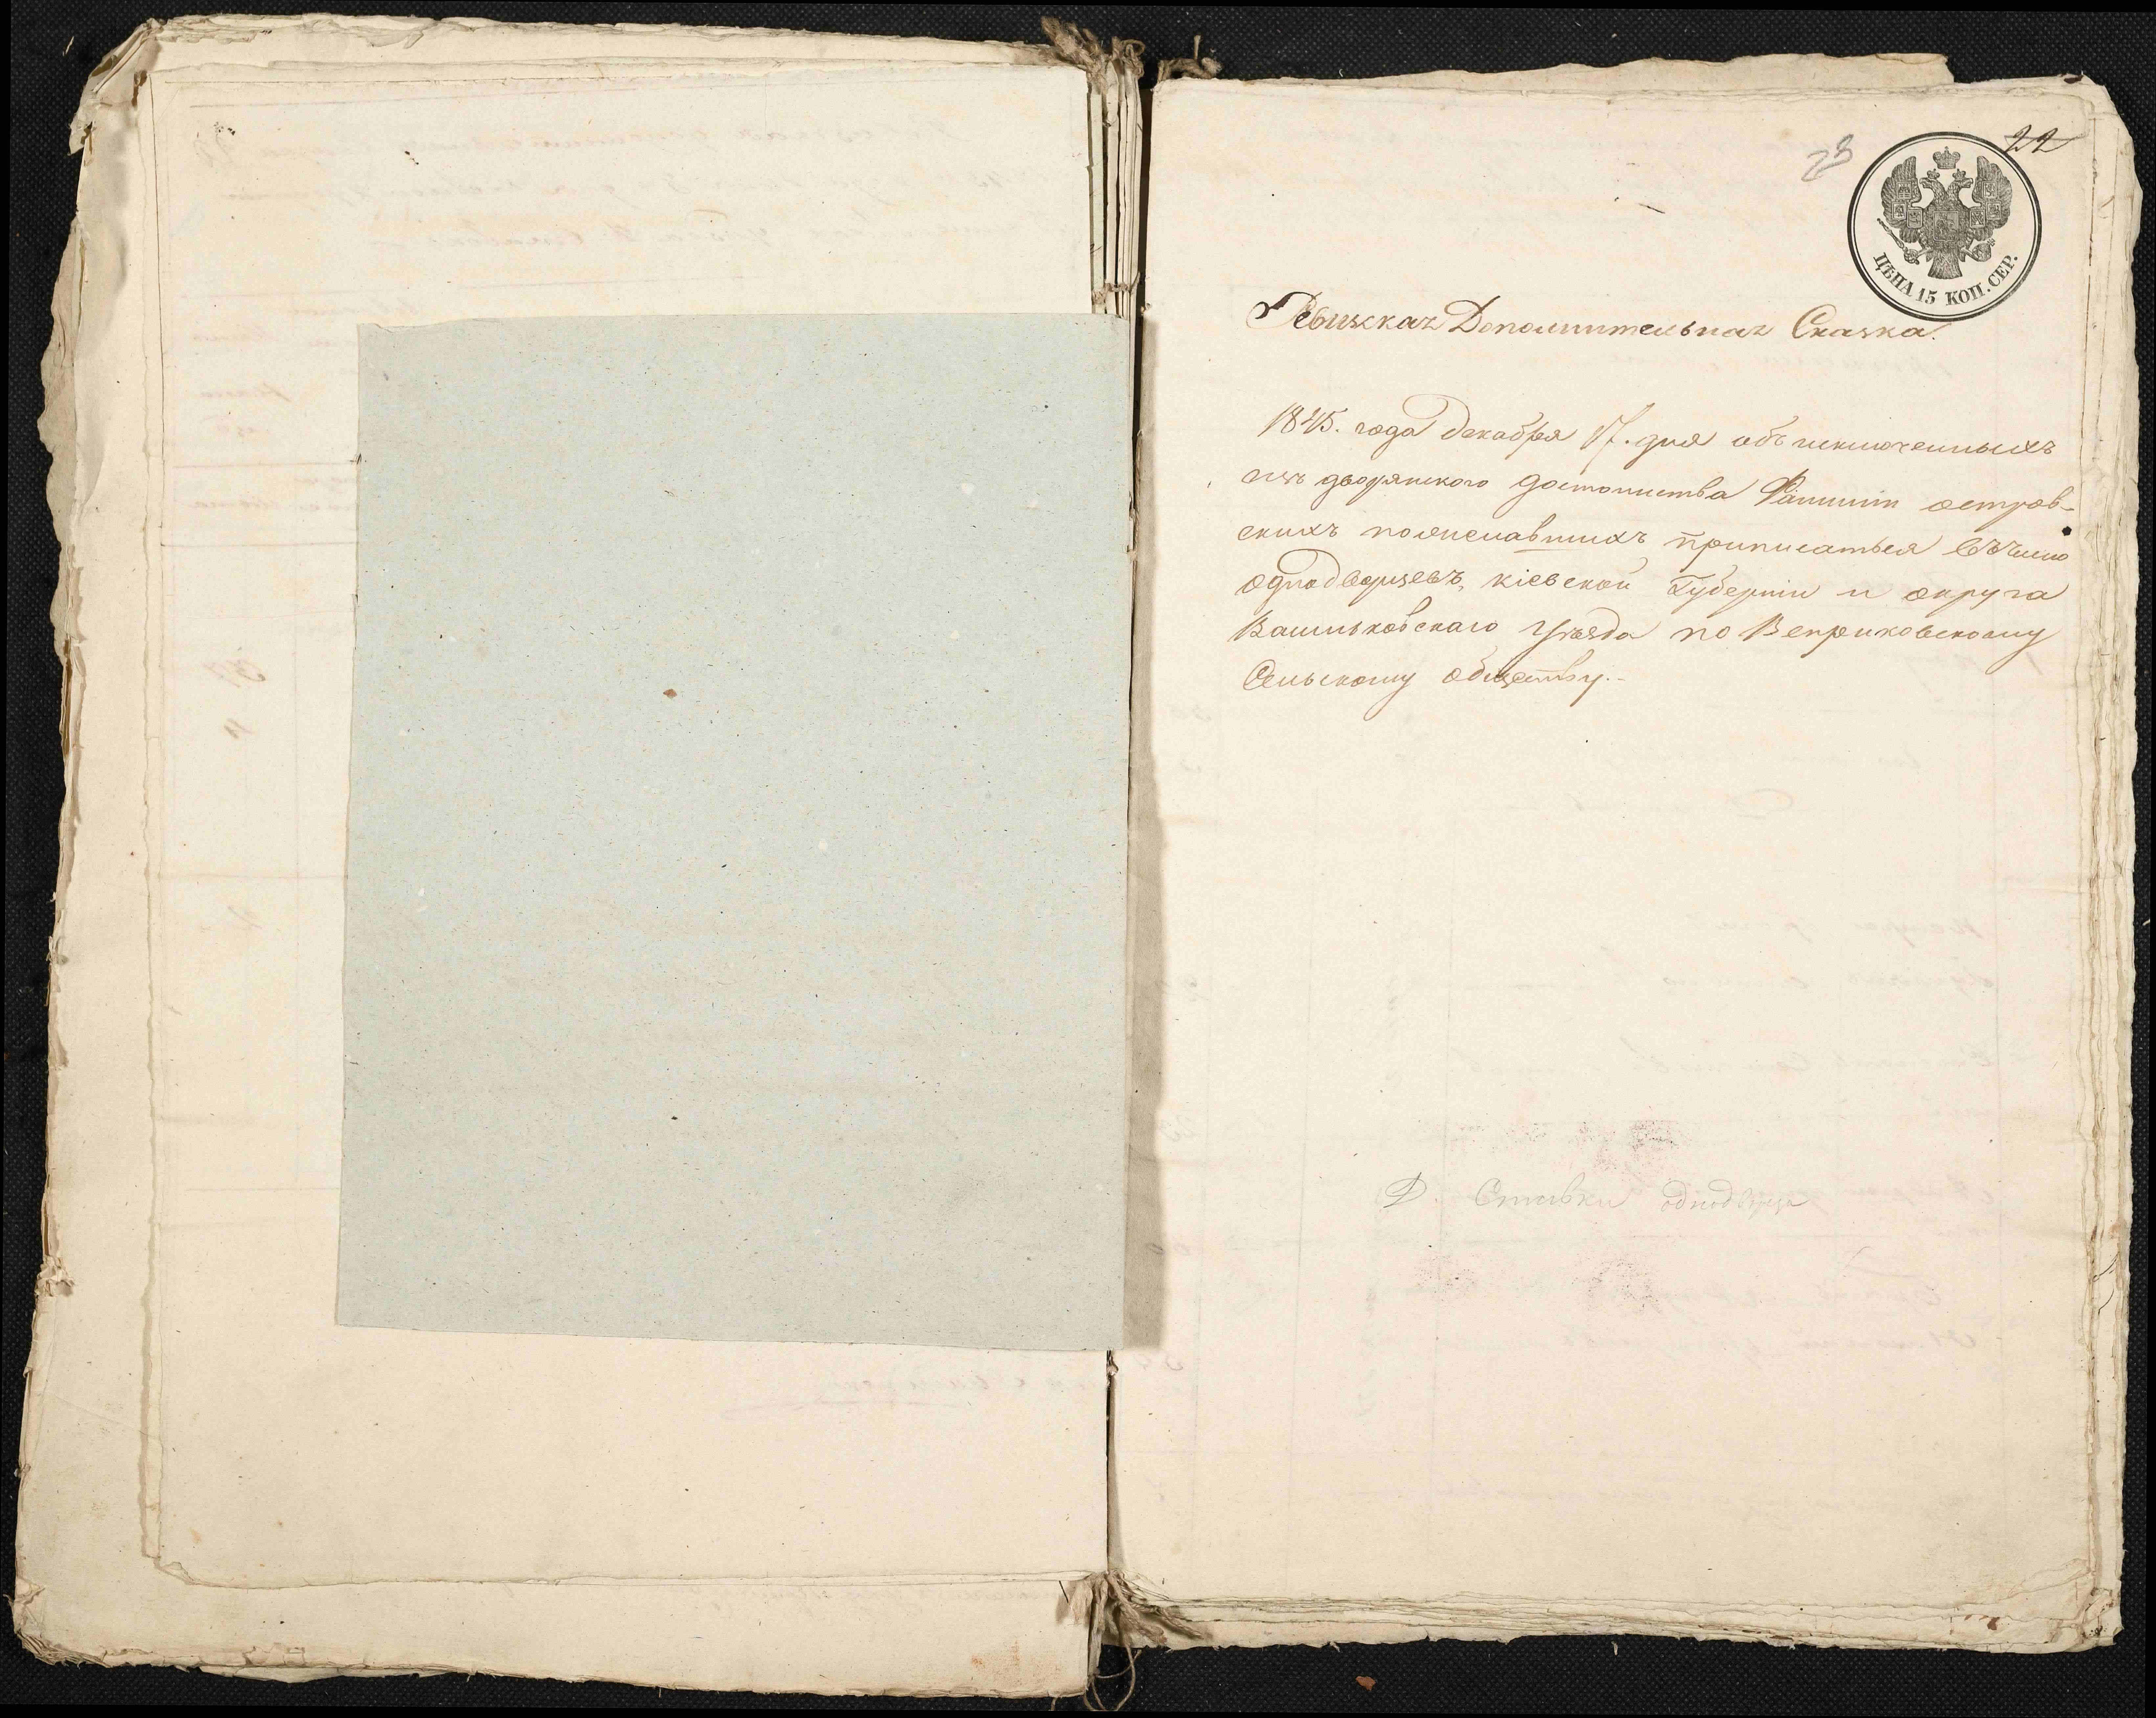 23
22
ЦѢНА 15 КОП. СЕР.
Ревизская Дополнительная Сказка.
1845. года декабря 17. дня объ исключенныхъ
изъ дворянского достоинства Фамиліи остров-
скихъ пожелавшихъ приписаться въ число
однодворцевъ, кіевской Губерніи и округа
Васильковскаго Уѣзда по Веприковскому
Сельскому обществу.-
Д. Спивки однодворца